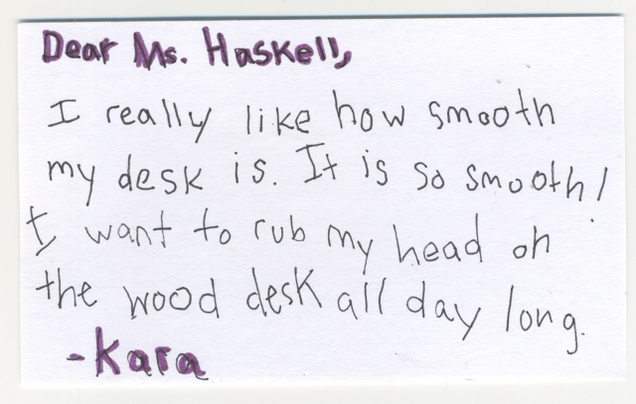 Dear Ms. Haskell,
I really like how smooth
my desk is. It is so smooth!
I want to rub my head on
the wood desk all day long.
-Kara